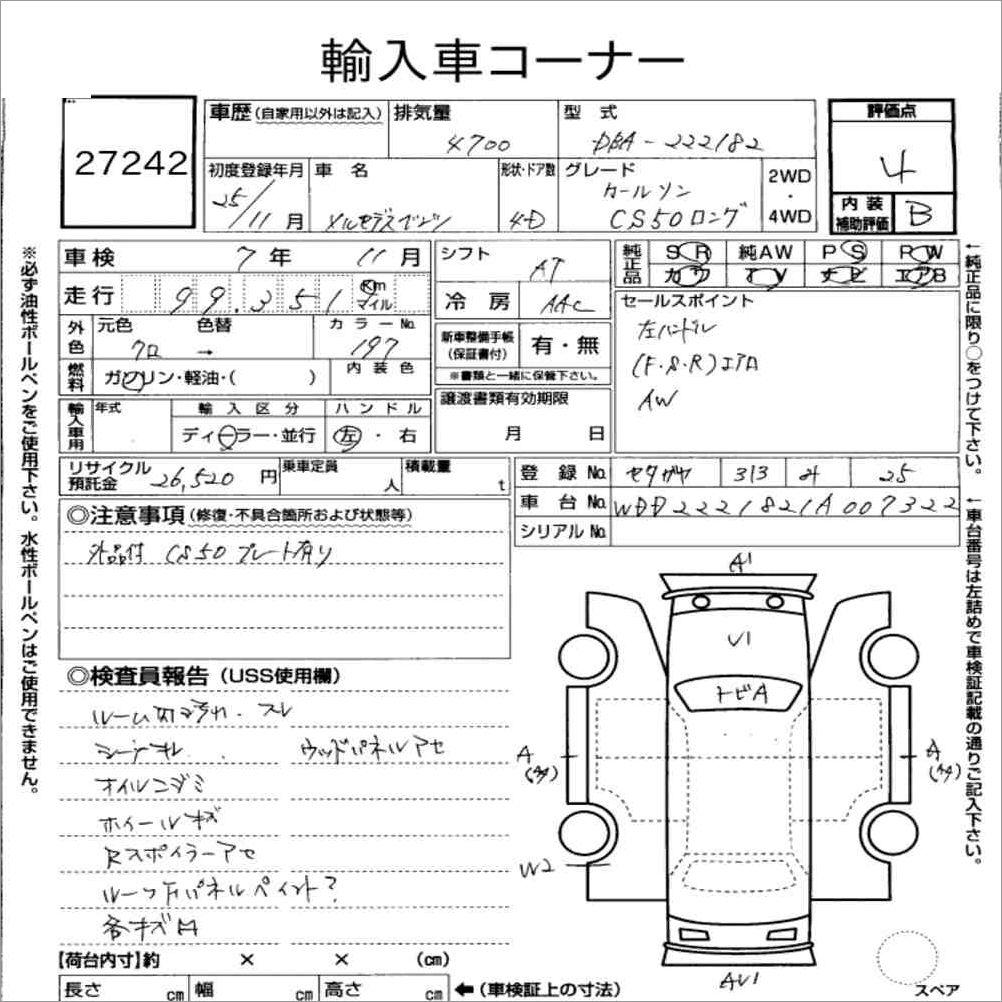 輸入車コーナー
27242
車歴(自家用以外は記入)
排気量
4700
型 式
DBA-222182
評価点
4
内装補助評価 B
初度登録年月
25/11月
車 名
メルセデスベンツ
形状・ドア数
4D
グレード
カールソン
CS50ロング
2WD
・
4WD
車検 7年 11月
走行 99,351 Km マイル
外色 元色 色替 カラーNo.
クロ → 197
燃料 ガソリン・軽油・( ) 内装色
輸入車用 年式 輸入区分 ハンドル
ディーラー・並行 左・右
シフト AT
冷房 AAC
新車整備手帳(保証書付) 有・無
※書類と一緒に保管下さい。
譲渡書類有効期限
月 日
純正品 SR 純AW PS PW
カワ TV ナビ エアB
セールスポイント
左ハンドル
(F.S.R)エアロ
AW
リサイクル預託金 26,520円
乗車定員 人
積載量 t
登録No. セタガヤ 313 25
車台No. WDD2221821A007322
シリアルNo.
◎注意事項(修復・不具合箇所および状態等)
外品付 CS50プレート有り
◎検査員報告(USS使用欄)
ルーム内ヨゴレ.スレ
ウッドパネルアセ
オイルニジミ
ホイールキズ
Rスポイラーアセ
ルーフ下パネルペイント?
各キズ凹
A1
U1
トビA
A
A
W2
AU1
スペア
【荷台内寸】約 × × (cm)
長さ cm 幅 cm 高さ cm ←(車検証上の寸法)
※必ず油性ボールペンをご使用下さい。水性ボールペンはご使用できません。
←純正品に限り○をつけて下さい。
←車台番号は左詰めで車検証記載の通りご記入下さい。